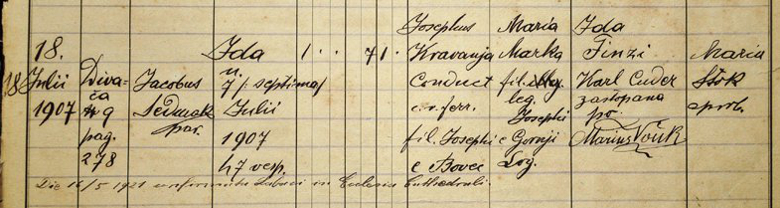 Josephus Maria Ida
18. Ida 1 . . 71. Kravanja Marka Finzi Maria
18 Julii Divača Jacobus n. 7 /: septima/ conduct fil. leg. Karl Cuder Štok
1907 No 9 Sedmak Julii con. ferr. Josephi zastopana prob.
pag. par. 1907 fil. Josephi e Gornji po.
278 h 7 vesp. e Bovec Log. Marius Vouk
Die 16/5 1921 confirmata Labaci in Ecclesia Cathedrali.